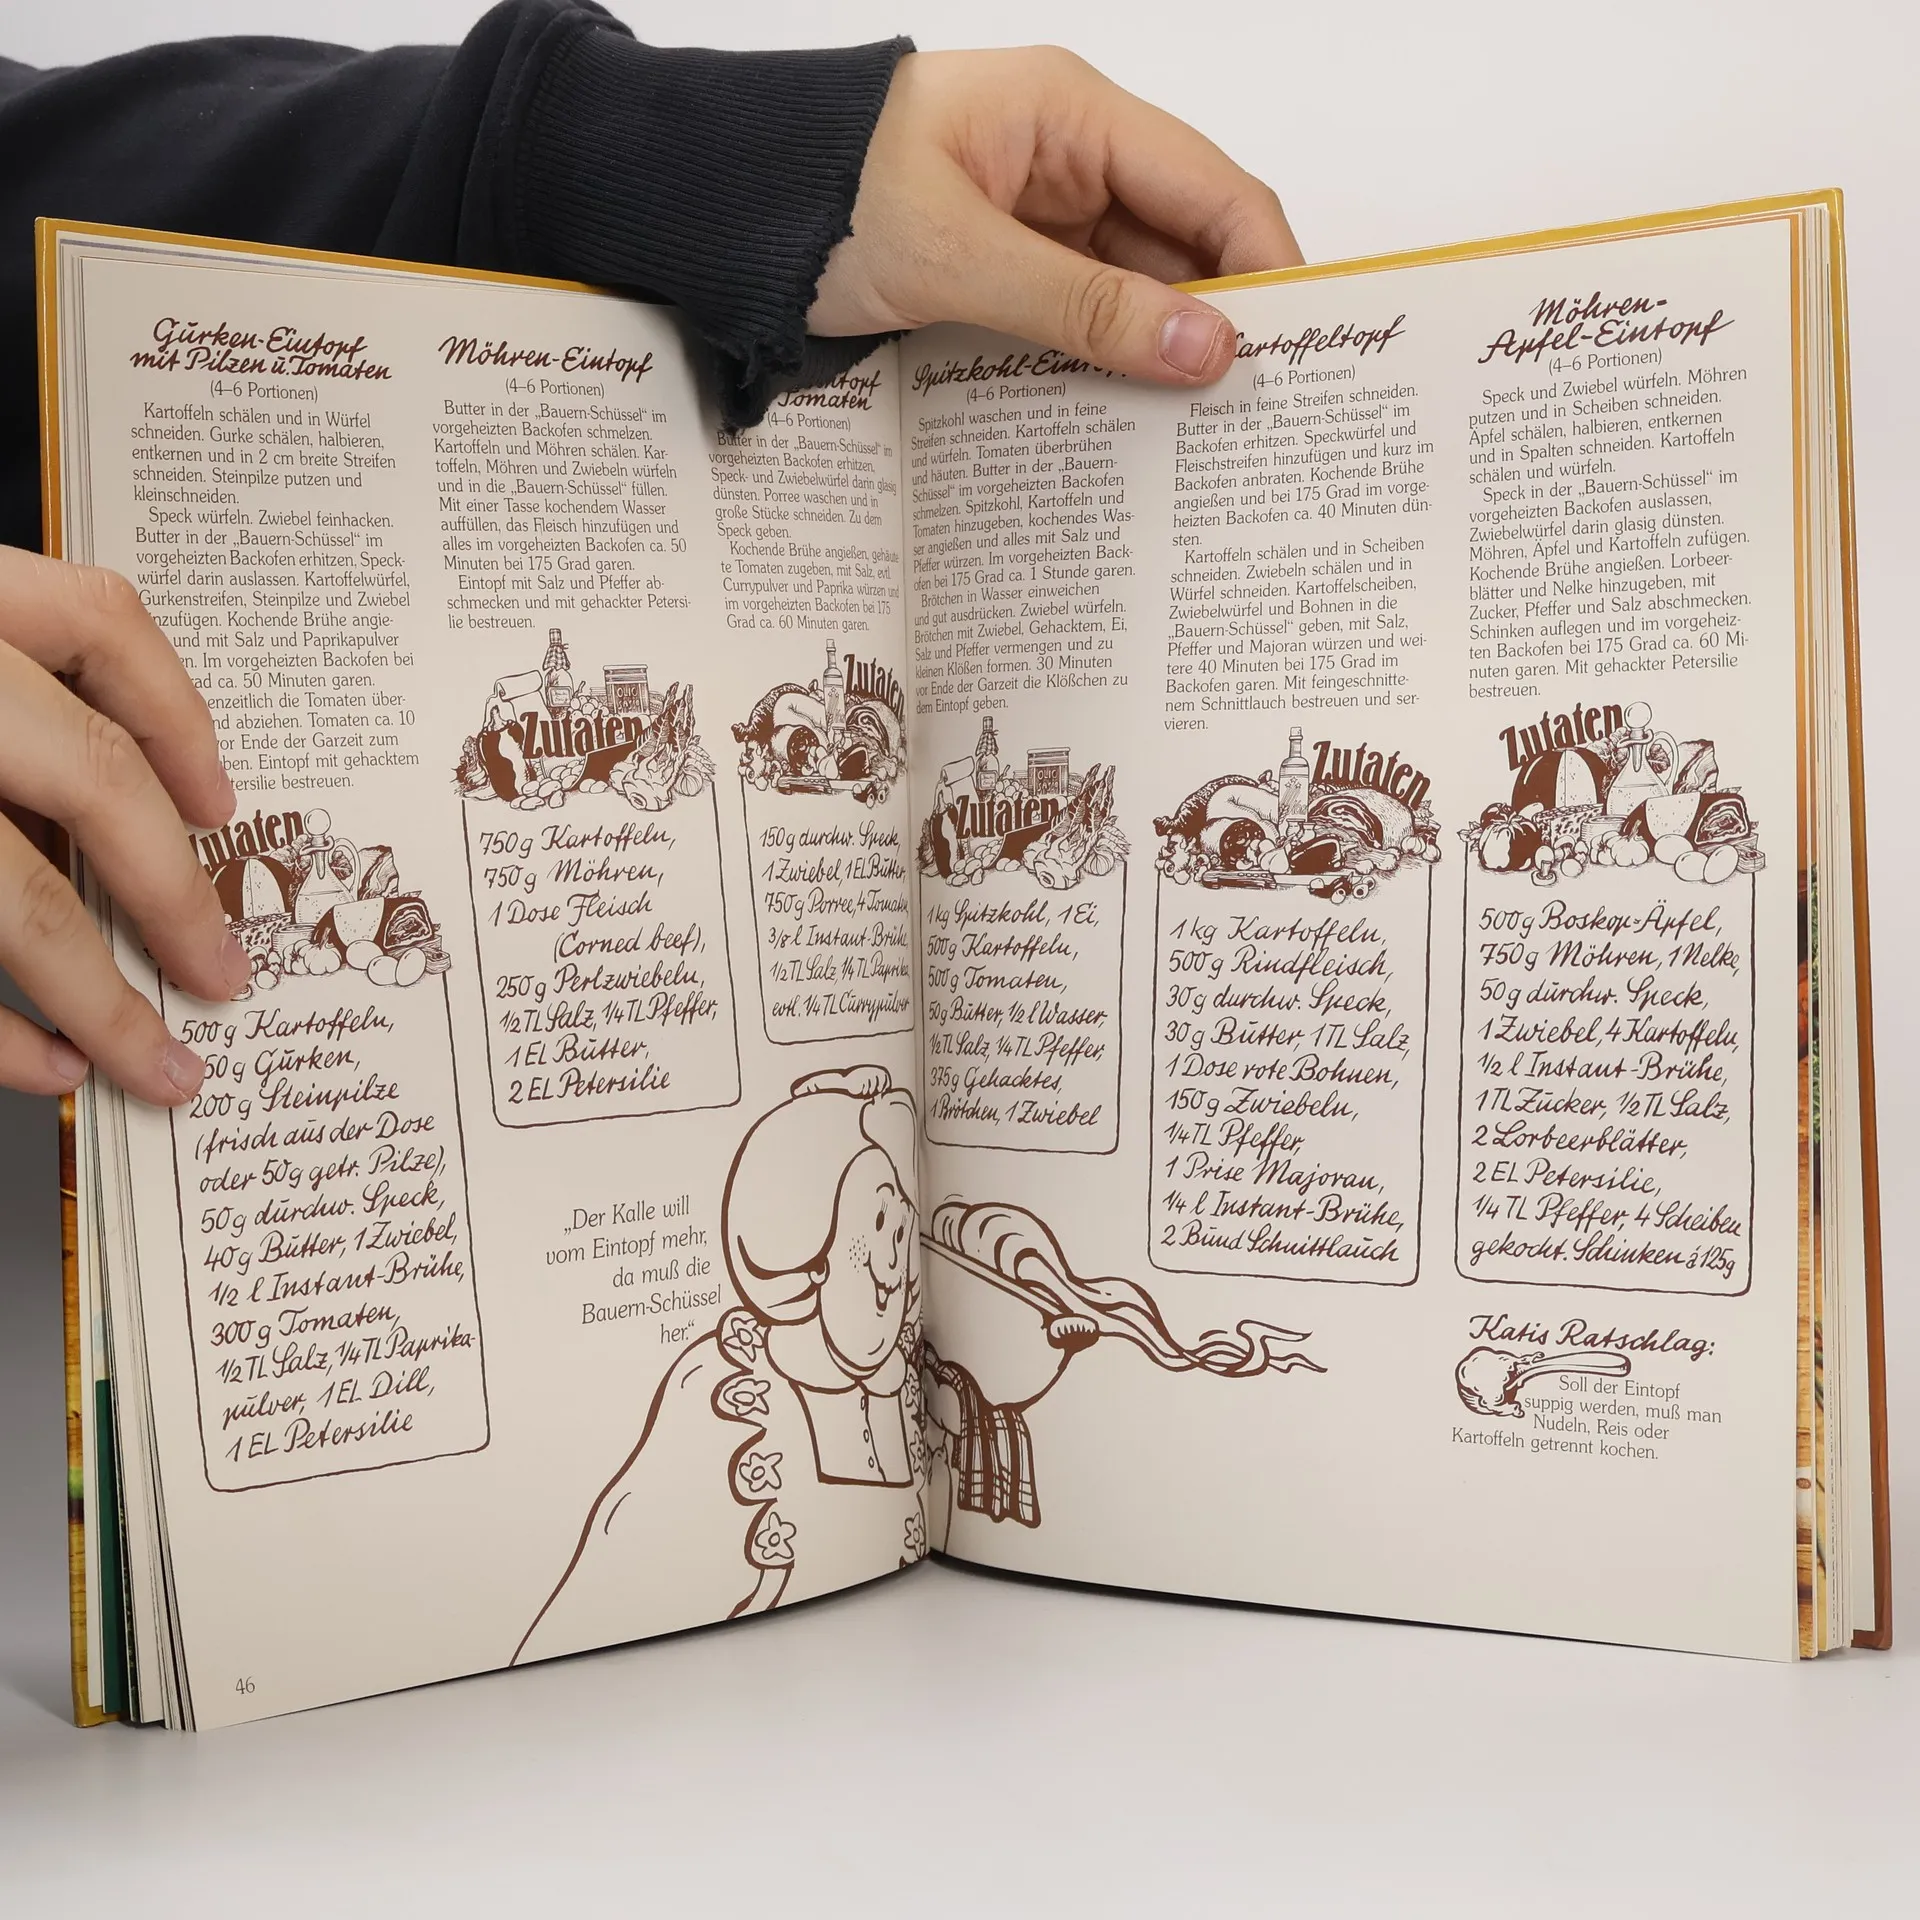 Gurken-Eintopf
mit Pilzen u. Tomaten
(4–6 Portionen)
Kartoffeln schälen und in Würfel
schneiden. Gurke schälen, halbieren,
entkernen und in 2 cm breite Streifen
schneiden. Steinpilze putzen und
kleinschneiden.
Speck würfeln. Zwiebel feinhacken.
Butter in der „Bauern-Schüssel“ im
vorgeheizten Backofen erhitzen, Speck-
würfel darin auslassen. Kartoffelwürfel,
Gurkenstreifen, Steinpilze und Zwiebel
Kochende Brühe angie-
und mit Salz und Paprikapulver
Im vorgeheizten Backofen bei
ca. 50 Minuten garen.
die Tomaten über-
abziehen. Tomaten ca. 10
vor Ende der Garzeit zum
Eintopf mit gehacktem
bestreuen.
Zutaten
500g Kartoffeln,
Gurken,
200g Steinpilze
(frisch aus der Dose
oder 50g getr. Pilze),
50g durchw. Speck,
40g Butter, 1 Zwiebel,
1/2 l Instant-Brühe,
300g Tomaten,
1/2 TL Salz, 1/4 TL Paprika-
pulver, 1 EL Dill,
1 EL Petersilie
46
Möhren-Eintopf
(4–6 Portionen)
Butter in der „Bauern-Schüssel“ im
vorgeheizten Backofen schmelzen.
Kartoffeln und Möhren schälen. Kar-
toffeln, Möhren und Zwiebeln würfeln
und in die „Bauern-Schüssel“ füllen.
Mit einer Tasse kochendem Wasser
auffüllen, das Fleisch hinzufügen und
alles im vorgeheizten Backofen ca. 50
Minuten bei 175 Grad garen.
Eintopf mit Salz und Pfeffer ab-
schmecken und mit gehackter Petersi-
lie bestreuen.
Zutaten
750g Kartoffeln,
750g Möhren,
1 Dose Fleisch
(Corned beef),
250g Perlzwiebeln,
1/2 TL Salz, 1/4 TL Pfeffer,
1 EL Butter,
2 EL Petersilie
„Der Kalle will
vom Eintopf mehr,
da muß die
Bauern-Schüssel
her.“
Tomaten
(4–6 Portionen)
Butter in der „Bauern-Schüssel“ im
vorgeheizten Backofen erhitzen,
Speck- und Zwiebelwürfel darin glasig
dünsten. Porree waschen und in
große Stücke schneiden. Zu dem
Speck geben.
Kochende Brühe angießen, gehäute
te Tomaten zugeben, mit Salz, evtl.
Currypulver und Paprika würzen und
im vorgeheizten Backofen bei 175
Grad ca. 60 Minuten garen.
Zutaten
150g durchw. Speck,
1 Zwiebel, 1 EL Butter,
750g Porree, 4 Tomaten,
3/8 l Instant-Brühe,
1/2 TL Salz, 1/4 TL Paprika,
evtl. 1/4 TL Currypulver
Spitzkohl-Eintopf
(4–6 Portionen)
Spitzkohl waschen und in feine
Streifen schneiden. Kartoffeln schälen
und würfeln. Tomaten überbrühen
und häuten. Butter in der „Bauern-
Schüssel“ im vorgeheizten Backofen
schmelzen. Spitzkohl, Kartoffeln und
Tomaten hinzugeben, kochendes Was-
ser angießen und alles mit Salz und
Pfeffer würzen. Im vorgeheizten Back-
ofen bei 175 Grad ca. 1 Stunde garen.
Brötchen in Wasser einweichen
und gut ausdrücken. Zwiebel würfeln.
Brötchen mit Zwiebel, Gehacktem, Ei,
Salz und Pfeffer vermengen und zu
kleinen Klößen formen. 30 Minuten
vor Ende der Garzeit die Klößchen zu
dem Eintopf geben.
Zutaten
1kg Spitzkohl, 1 Ei,
500g Kartoffeln,
500g Tomaten,
50g Butter, 1/2 l Wasser,
1/2 TL Salz, 1/4 TL Pfeffer,
375g Gehacktes,
1 Brötchen, 1 Zwiebel
artoffeltopf
(4–6 Portionen)
Fleisch in feine Streifen schneiden.
Butter in der „Bauern-Schüssel“ im
Backofen erhitzen. Speckwürfel und
Fleischstreifen hinzufügen und kurz im
Backofen anbraten. Kochende Brühe
angießen und bei 175 Grad im vorge-
heizten Backofen ca. 40 Minuten dün-
sten.
Kartoffeln schälen und in Scheiben
schneiden. Zwiebeln schälen und in
Würfel schneiden. Kartoffelscheiben,
Zwiebelwürfel und Bohnen in die
„Bauern-Schüssel“ geben, mit Salz,
Pfeffer und Majoran würzen und wei-
tere 40 Minuten bei 175 Grad im
Backofen garen. Mit feingeschnitte-
nem Schnittlauch bestreuen und ser-
vieren.
Zutaten
1 kg Kartoffeln,
500g Rindfleisch,
30g durchw. Speck,
30g Butter, 1 TL Salz,
1 Dose rote Bohnen,
150g Zwiebeln,
1/4 TL Pfeffer,
1 Prise Majoran,
1/4 l Instant-Brühe,
2 Bund Schnittlauch
Möhren-
Äpfel-Eintopf
(4–6 Portionen)
Speck und Zwiebel würfeln. Möhren
putzen und in Scheiben schneiden.
Äpfel schälen, halbieren, entkernen
und in Spalten schneiden. Kartoffeln
schälen und würfeln.
Speck in der „Bauern-Schüssel“ im
vorgeheizten Backofen auslassen,
Zwiebelwürfel darin glasig dünsten.
Möhren, Äpfel und Kartoffeln zufügen.
Kochende Brühe angießen. Lorbeer-
blätter und Nelke hinzugeben, mit
Zucker, Pfeffer und Salz abschmecken.
Schinken auflegen und im vorgeheiz-
ten Backofen bei 175 Grad ca. 60 Mi-
nuten garen. Mit gehackter Petersilie
bestreuen.
Zutaten
500g Boskop-Äpfel,
750g Möhren, 1 Nelke,
50g durchw. Speck,
1 Zwiebel, 4 Kartoffeln,
1/2 l Instant-Brühe,
1 TL Zucker, 1/2 TL Salz,
2 Lorbeerblätter,
2 EL Petersilie,
1/4 TL Pfeffer, 4 Scheiben
gekocht. Schinken à 125g
Katis Ratschlag:
Soll der Eintopf
suppig werden, muß man
Nudeln, Reis oder
Kartoffeln getrennt kochen.